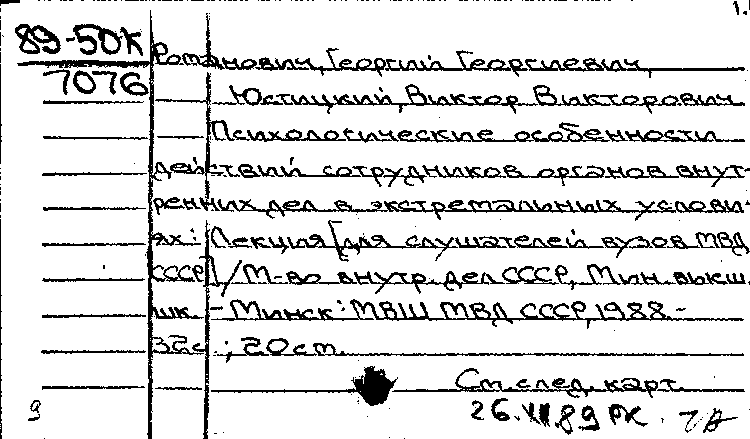 1.
89-50К
7076
Романович, Георгий Георгиевич,
Юстицкий, Виктор Викторович
Психологические особенности
действий сотрудников органов внут-
ренних дел в экстремальных услови-
ях: Лекция [для слушателей вузов МВД
СССР] / М-во внутр. дел СССР, Мин. высш.
шк. - Минск: МВШ МВД СССР, 1988. -
32с.; 20 см.
См. след. карт.
26. 89 РК.
9